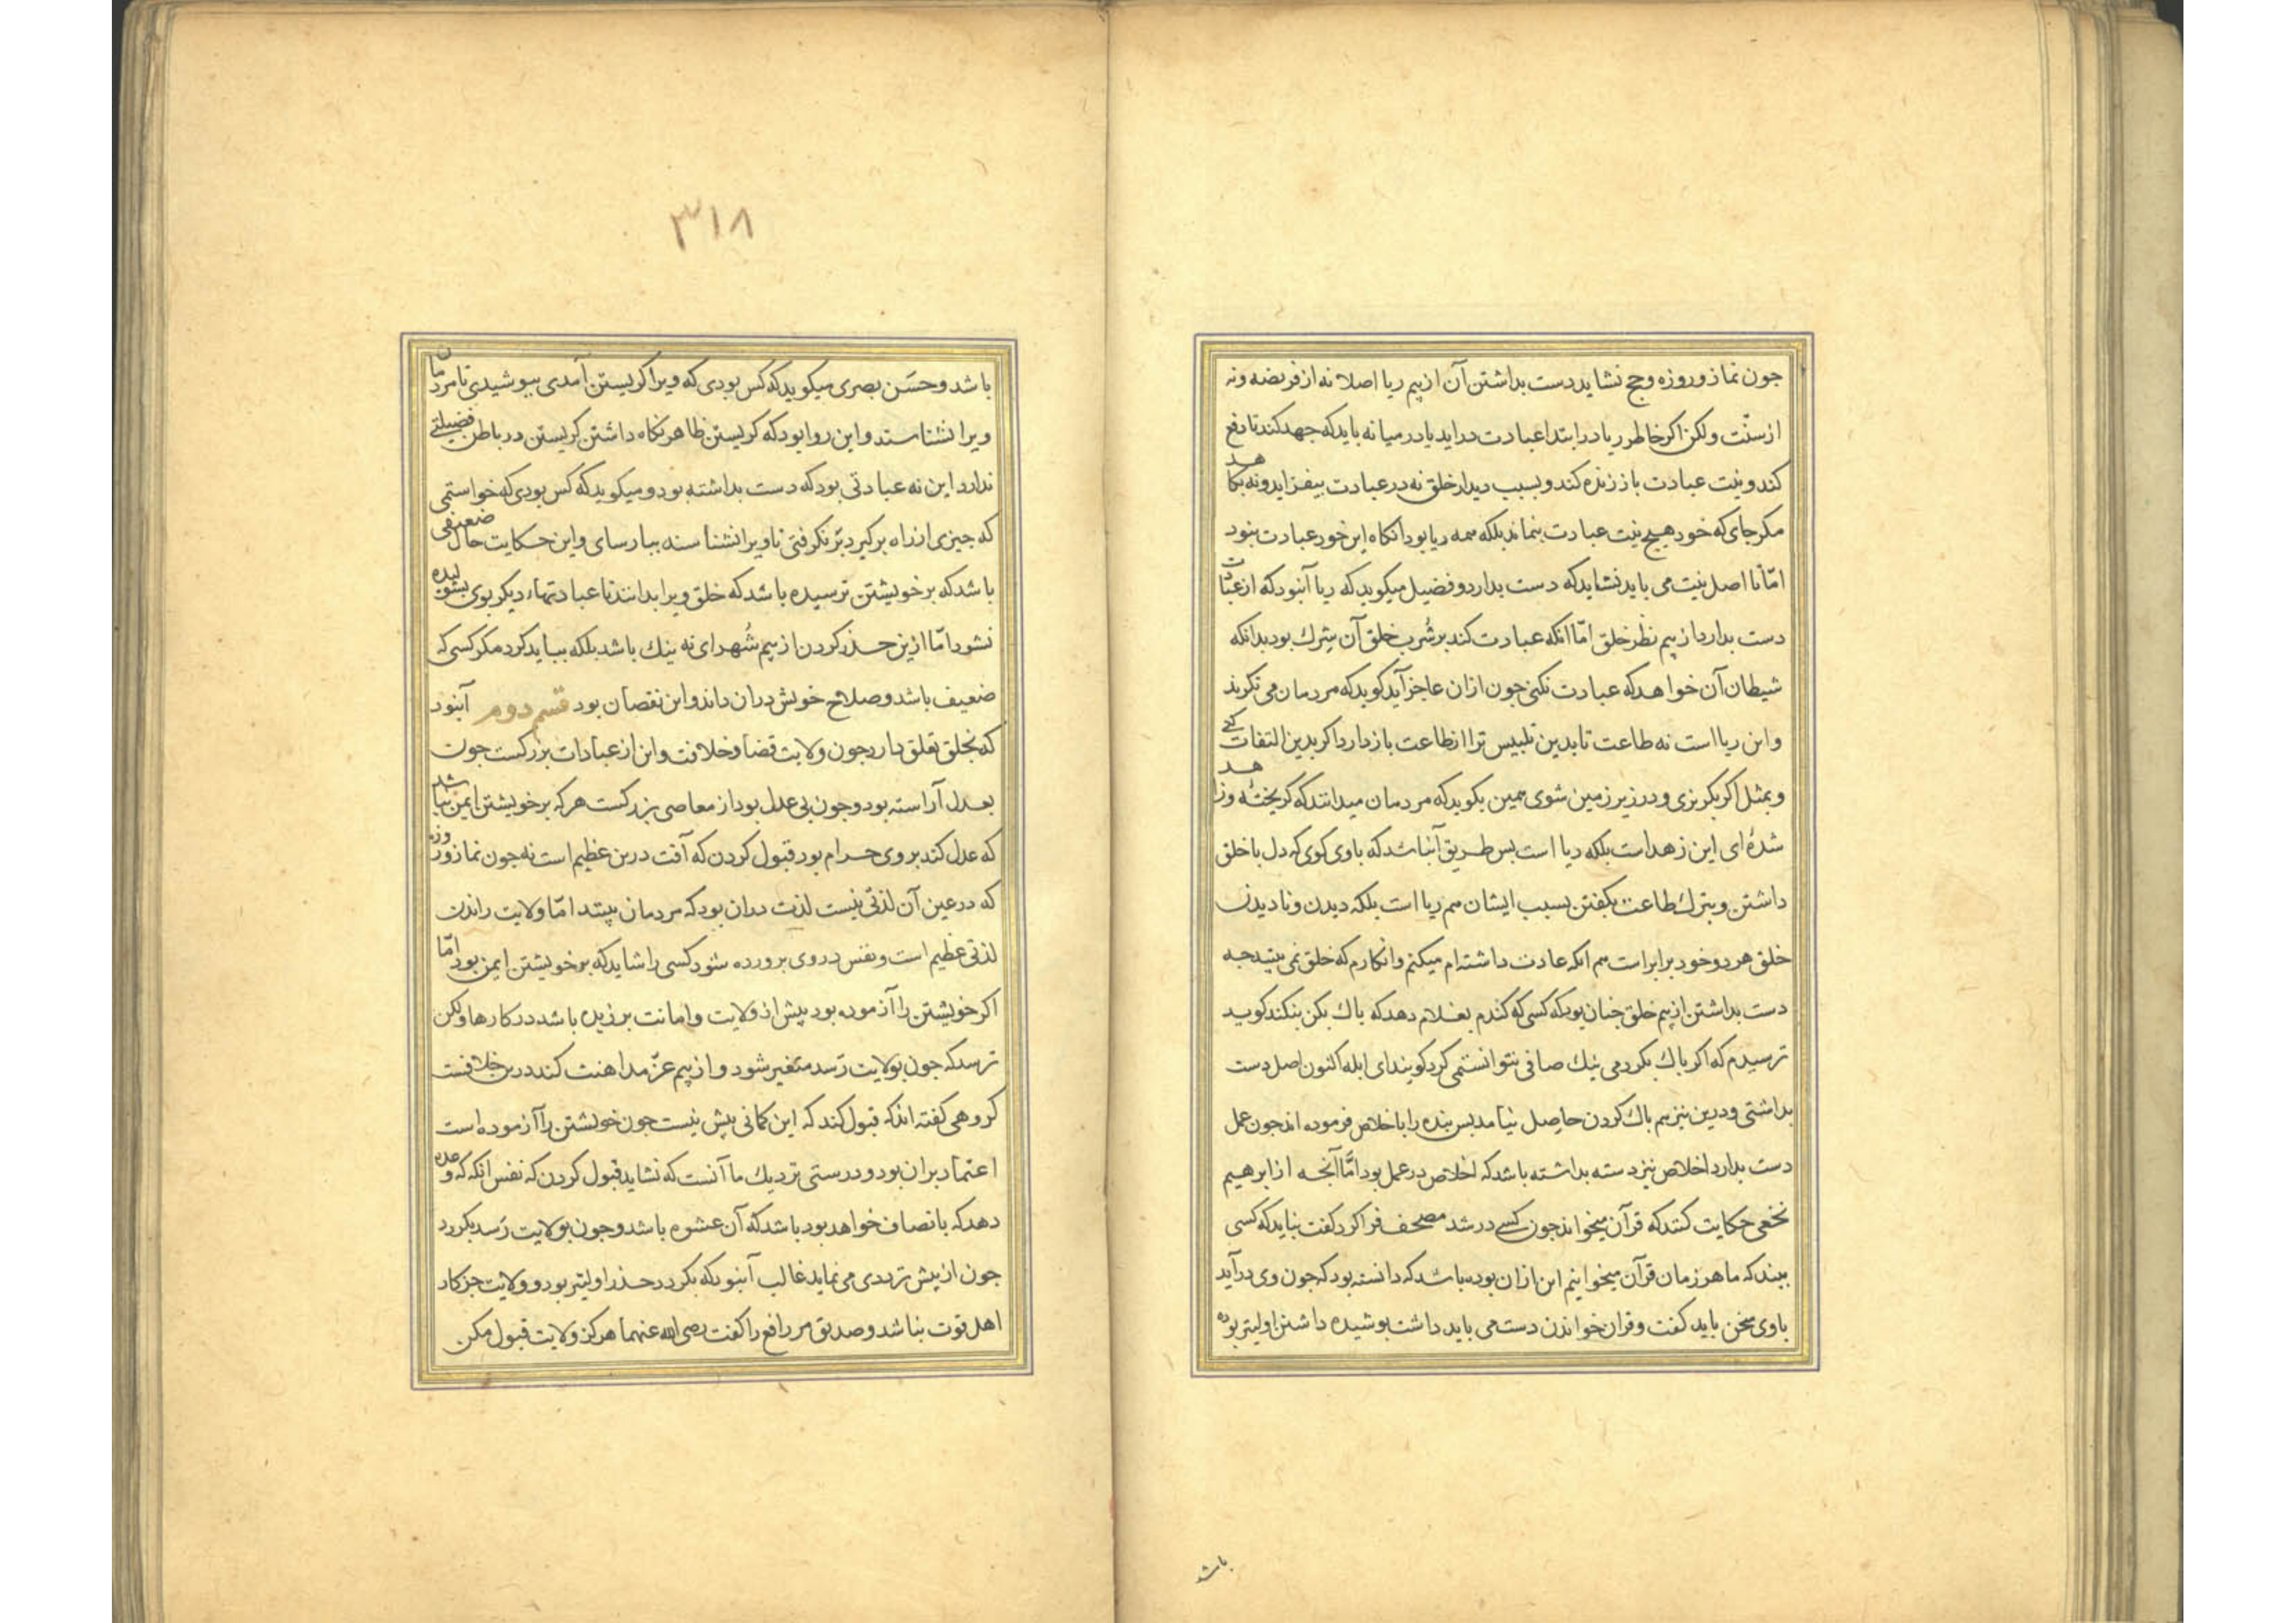 جون نماز و روزه و حج نشاید دست بداشتن آن از بیم ریا اصلا نه از فریضه و نه
از سنّت ولکن اکر خاطر ریا در ابتدا عبادت دراید یا در میانه باید که جهد کند تا دفع
کند و نیت عبادت باز زنده کند و بسبب دیدار خلق نه در عبادت بیفزاید و نه بکاهد
مکر جای که خود هیچ نیت عبادت بنماند بلکه همه ریا بود انکاه این خود عبادت نبود
امّا تا اصل نیت می باید نشاید که دست بدارد و فضیل میکوید که ریا آنبود که از عبادت
دست بدارد از بیم نظر خلق امّا انکه عبادت کند برشرب خلق آن شرک بود بدانکه
شیطان آن خواهد که عبادت نکنی جون ازان عاجز آید کوید که مردمان می نکرند
و این ریا است نه طاعت تا بدین تلبیس ترا از طاعت باز دارد اکر بدین التفات کنی
و بمثل اکر بکریزی و در زیر زمین شوی همین بکوید که مردمان میدانند که کریختهٔ و زاهد
شدهٔ ای این زهد است بلکه ریا است بس طریق آنباشد که باوی کوی که دل با خلق
داشتن و بترک طاعت بکفتن بسبب ایشان هم ریا است بلکه دیدن و نا دیدن
خلق هر دو خود برابر است هم انکه عادت داشته ام میکنم و انکارم که خلق نمی بیند جه
دست بداشتن از بیم خلق جنان بود که کسی که کندم بغلام دهد که باک بکن بنکند کوید
ترسیدم که اکر باک بکردمی نیک صافی نتوانستمی کرد کویند ای ابله اکنون اصل دست
بداشتی و درین نیز هم باک کردن حاصل نیامد بس بنده را باخلاص فرموده اند جون عمل
دست بدارد اخلاص نیز دسته بداشته باشد که اخلاص در عمل بود امّا آنجه از ابرهیم
نخعی حکایت کنند که قرآن میخواند جون کسی در شد مصحف فرا کرد کفت نباید که کسی
بیند که ما هر زمان قرآن میخوانیم این ازان بوده باشد که دانسته بود که جون وی در آید
باوی سخن باید کفت و قران خواندن دست می باید داشت بوشیده داشتن اولیتر بوده
باشد
۳۱۸
باشد و حسَن بصری میکوید که کس بودی که ویرا کریستن آمدی ببوشیدی تا مردمان
ویرا نشناسند و این روا بود که کریستن ظاهر نکاه داشتن کریستن در باطن فضیلتی
ندارد این نه عبادتی بود که دست بداشته بود و میکوید که کس بودی که خواستمی
که جیزی از راه برکیرد برنکرفتی تا ویرا نشناسند ببارسای و این حکایت حال ضعیفی
باشد که بر خویشتن ترسیده باشد که خلق ویرا بدانند تا عبادتهاء دیکر بوی بشولیده
نشود امّا ازین حذر کردن از بیم شُهرای نه نیک باشد بلکه بباید کرد مکر کسی که
ضعیف باشد و صلاح خویش دران داند و این نقصان بود قسم دوم آنبود
که بخلق تعلق دارد جون ولایت قضا و خلافت و این از عبادات بزرکست جون
بعدل آراسته بود و جون بی عدل بود از معاصی بزرکست هر که بر خویشتن ایمن نباشد
که عدل کند بروی حرام بود قبول کردن که آفت درین عظیم است نه جون نماز و روزه
که در عین آن لذتی نیست لذت دران بود که مردمان بینند امّا ولایت راندن
لذتی عظیم است و نفس در وی برورده شود کسی را شاید که بر خویشتن ایمن بود امّا
اکر خویشتن را آزموده بود بیش از ولایت و امانت برزیده باشد در کارها ولکن
ترسد که جون بولایت رَسد متغیر شود و از بیم عزّ مداهنت کند درین خلافست
کروهی کفته اند که قبول کند که این کمانی بیش نیست جون خویشتن را آزموده است
اعتماد بران بود و درستی نزدیک ما آنست که نشاید قبول کردن که نفس انکه که وعده
دهد که بانصاف خواهد بود باشد که آن عشوه باشد و جون بولایت رَسد بکردد
جون از بیش تردی می نماید غالب آنبود که بکردد حذر اولیتر بود و ولایت جز کار
اهل قوت نباشد و صدیق مر رافع را کفت رضی الله عنهما هرکز ولایت قبول مکن